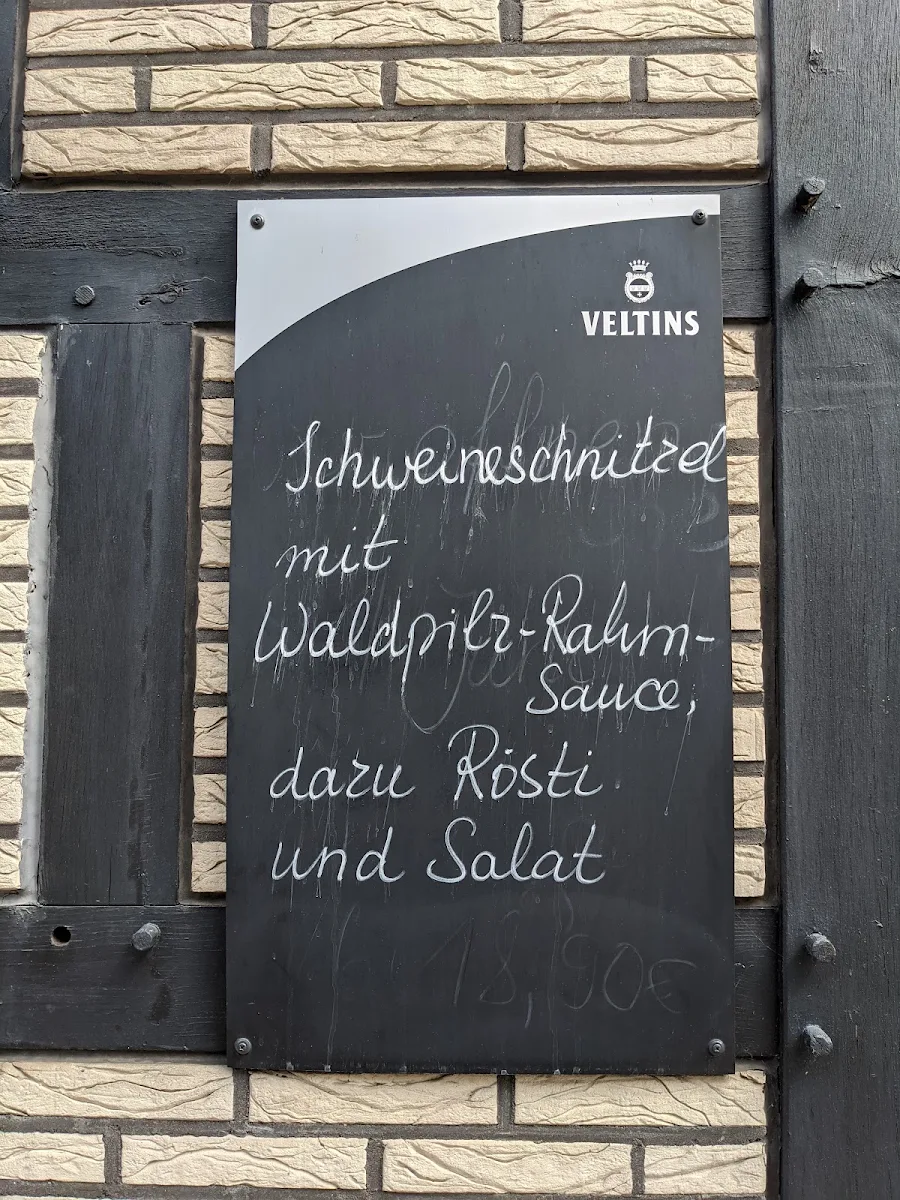 VELTINS
Schweineschnitzel
mit
Waldpilz-Rahm-
Sauce,
dazu Rösti
und Salat
18,90€